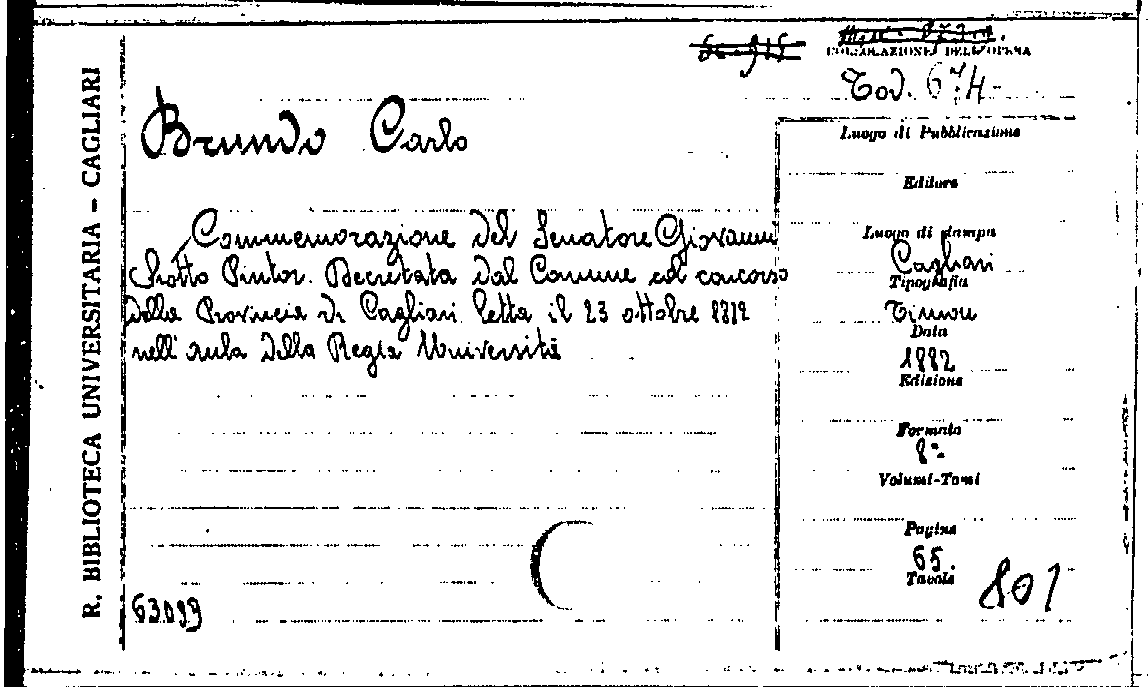 R. BIBLIOTECA UNIVERSITARIA – CAGLIARI
COLLOCAZIONE DELL'OPERA
Tod. 674-
Brundo Carlo
Commemorazione del Senatore Giovanni
Siotto Pintor. Decretata dal Comune col concorso
della Provincia di Cagliari letta il 23 ottobre 1882
nell'aula della Regia Università
63099
Luogo di Pubblicazione
Editore
Luogo di stampa
Cagliari
Tipografia
Timon
Data
1882
Edizione
Formato
8º
Volumi-Tomi
Pagine
65.
Tavole
801